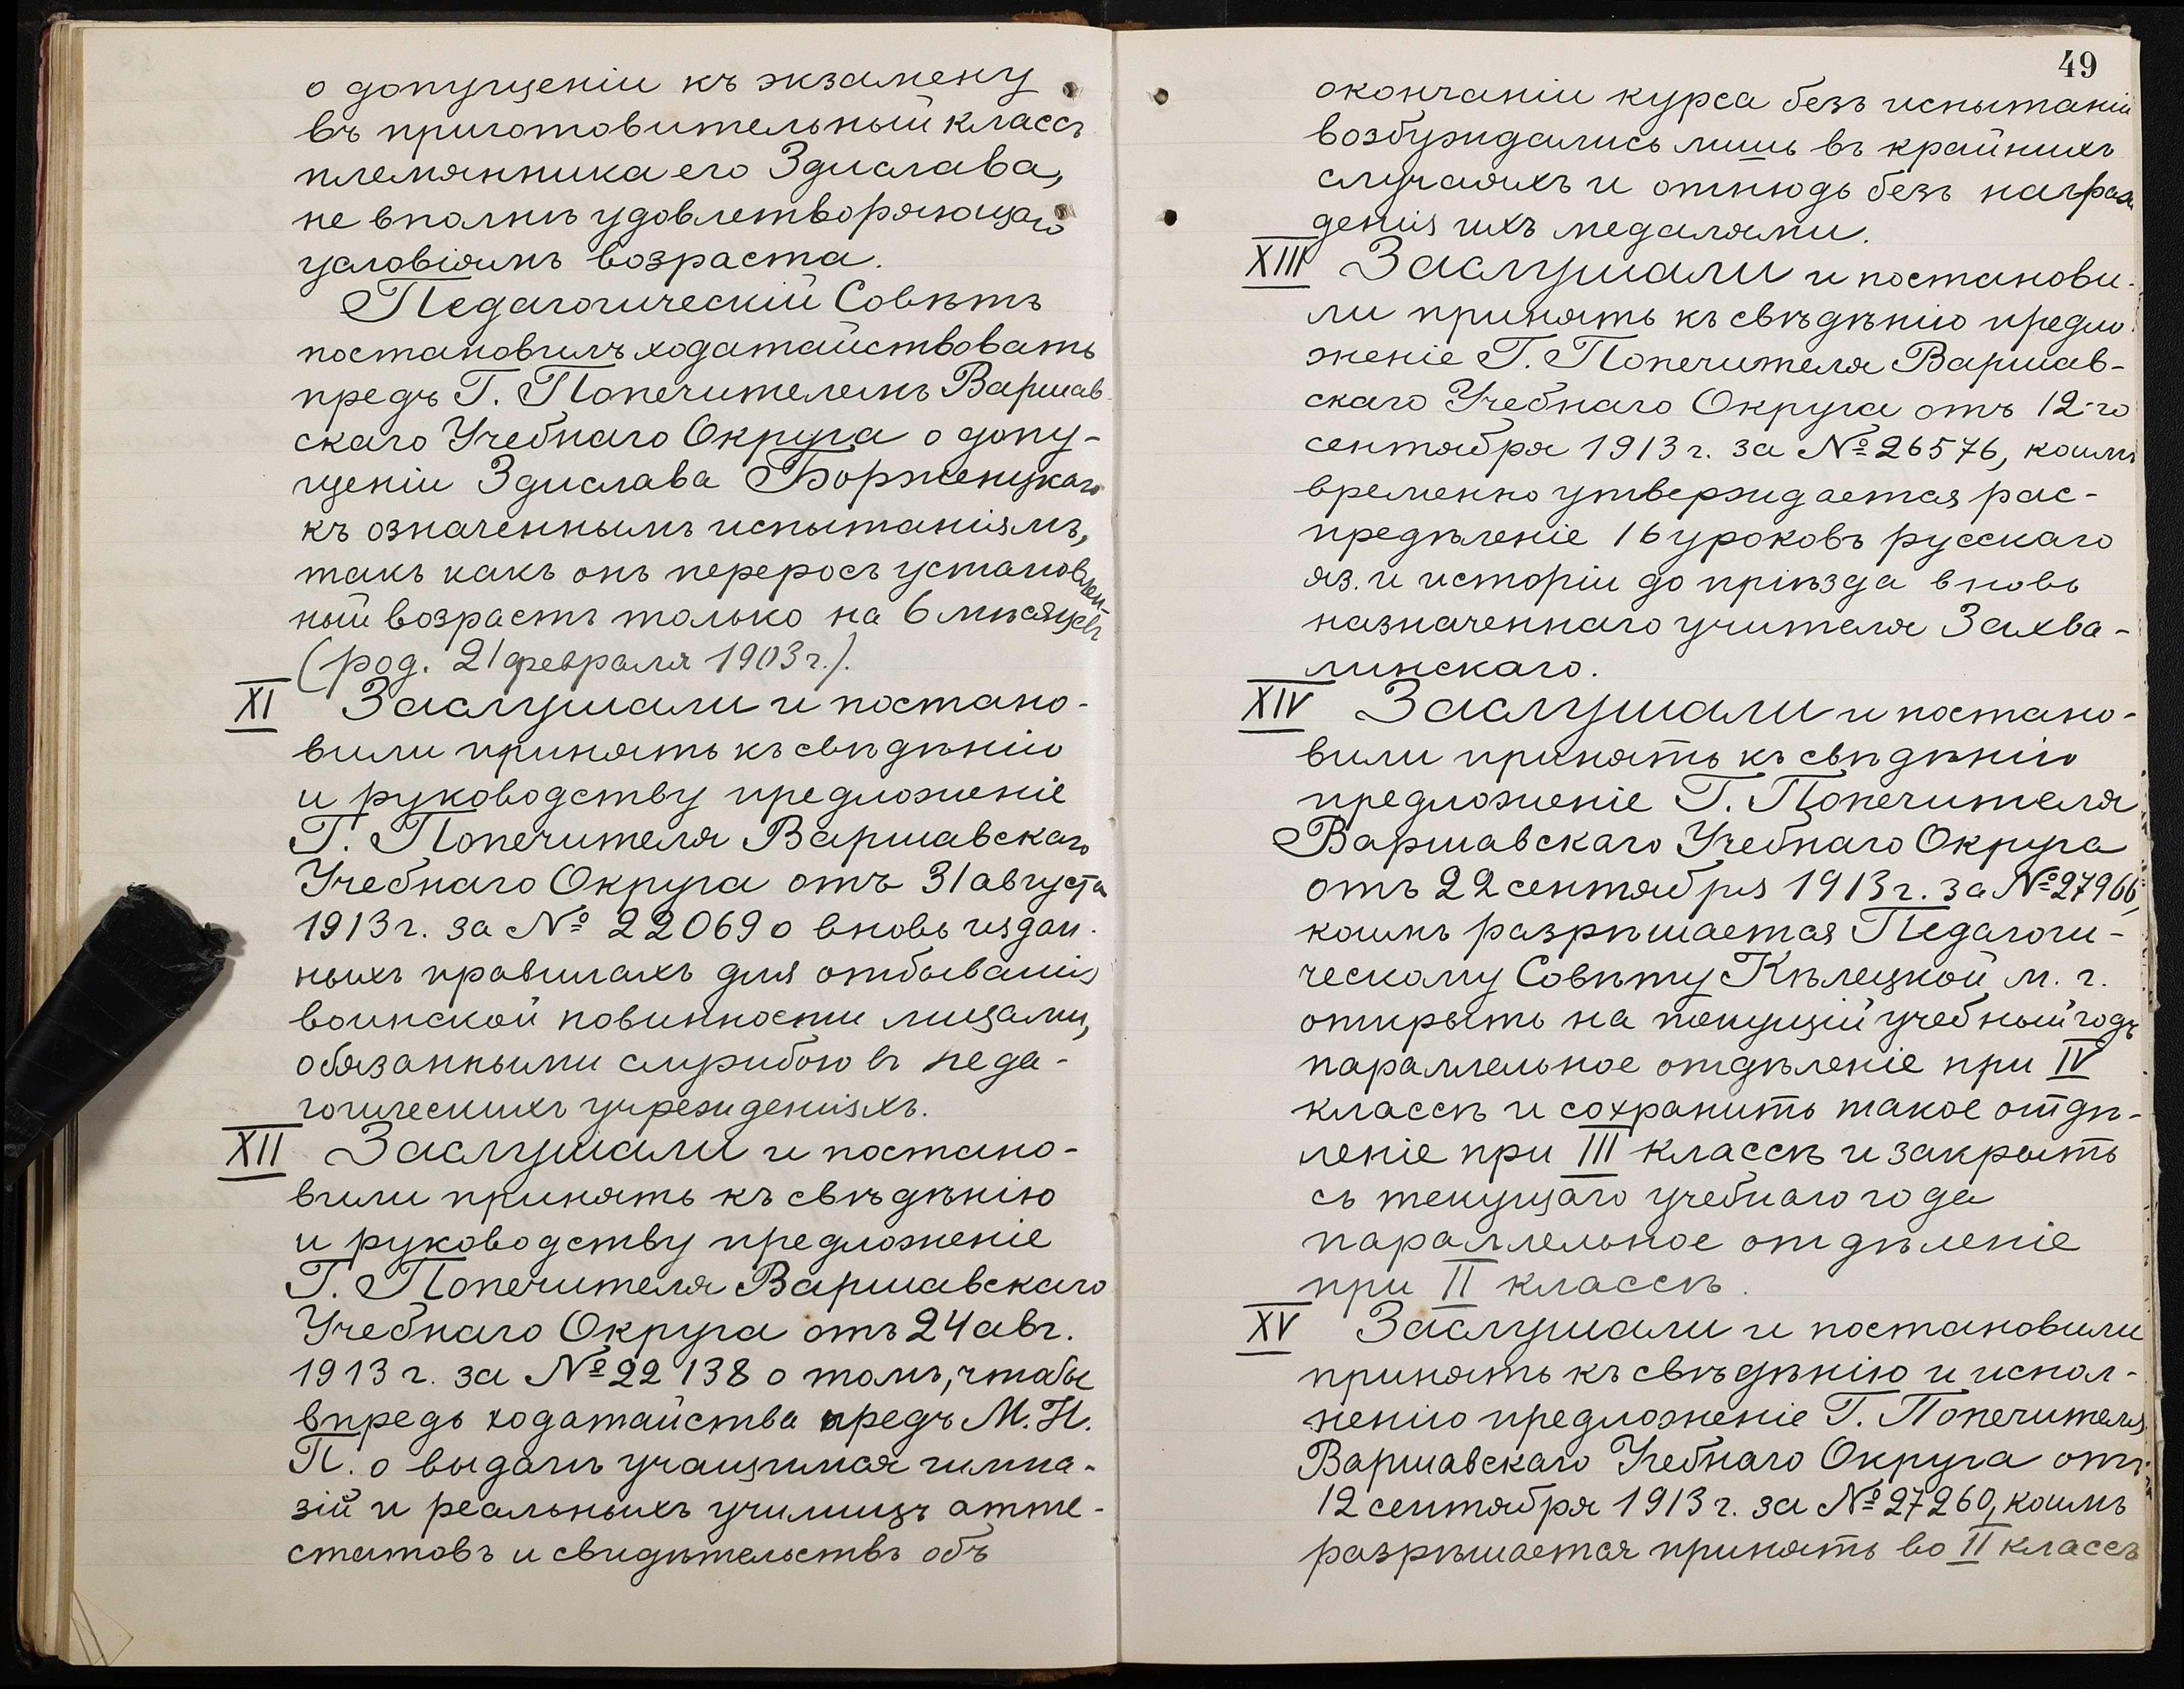 о допущеніи къ экзамену
въ приготовительный классъ
племянника его Здислава,
не вполнѣ удовлетворяющаго
условіямъ возраста.
Педагогическій Совѣтъ
постановилъ ходатайствовать
предъ Г. Попечителемъ Варшав-
скаго Учебнаго Округа о допу-
щеніи Здислава Борженцкаго
къ означеннымъ испытаніямъ,
такъ какъ онъ переросъ установлен-
ный возрастъ только на 6 мѣсяцевъ
(род. 21 февраля 1903 г.).
XI Заслушали и постано-
вили принять къ свѣдѣнію
и руководству предложеніе
Г. Попечителя Варшавскаго
Учебнаго Округа отъ 31 августа
1913 г. за № 22069 о вновь издан-
ныхъ правилахъ для отбыванія
воинской повинности лицами,
обязанными службою въ педа-
гогическихъ учрежденіяхъ.
XII Заслушали и постано-
вили принять къ свѣдѣнію
и руководству предложеніе
Г. Попечителя Варшавскаго
Учебнаго Округа отъ 24 авг.
1913 г. за № 22138 о томъ, чтобы
впредь ходатайства предъ М. Н.
П. о выдачѣ учащимся гимна-
зій и реальныхъ училищъ атте-
статовъ и свидѣтельствъ объ
49
окончаніи курса безъ испытаній
возбуждались лишь въ крайнихъ
случаяхъ и отнюдь безъ награж-
денія ихъ медалями.
XIII Заслушали и постанови-
ли принять къ свѣдѣнію предло-
женіе Г. Попечителя Варшав-
скаго Учебнаго Округа отъ 12-го
сентября 1913 г. за № 26576, коимъ
временно утверждается рас-
предѣленіе 16 уроковъ русскаго
яз. и исторіи до пріѣзда вновь
назначеннаго учителя Захва-
линскаго.
XIV Заслушали и постано-
вили принять къ свѣдѣнію
предложеніе Г. Попечителя
Варшавскаго Учебнаго Округа
отъ 22 сентября 1913 г. за № 27966,
коимъ разрѣшается Педагоги-
ческому Совѣту Кѣлецкой м. г.
открыть на текущій учебный годъ
параллельное отдѣленіе при IV
классѣ и сохранить такое отдѣ-
леніе при III классѣ и закрыть
съ текущаго учебнаго года
параллельное отдѣленіе
при II классѣ.
XV Заслушали и постановили
принять къ свѣдѣнію и испол-
ненію предложеніе Г. Попечителя
Варшавскаго Учебнаго Округа отъ
12 сентября 1913 г. за № 27260, коимъ
разрѣшается принять во II классъ